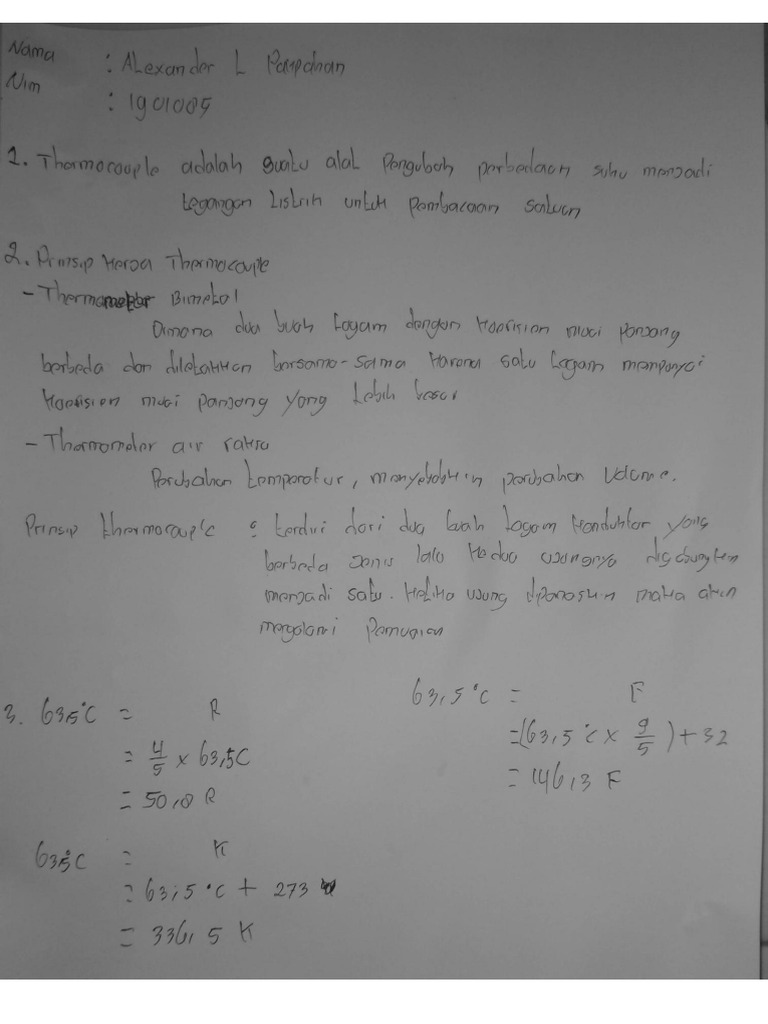 Nama : ALexander L Pampanan
Nim : 1901005
1. Thermocouple adalah suatu alat Pengubah perbedaan suhu menjadi
tegangan Listrik untuk pembacaan satuan
2. Prinsip Kerja Thermocouple
- Thermometer Bimetal
Dimana dua buah Logam dengan Koefision muai panjang
berbeda dan diletakkan bersama-sama Karena satu Logam mempunyai
Koefision muai panjang yang Lebih besar
- Thermometer air raksa
Perubahan temperatur, menyebabkan perubahan Volume.
Prinsip thermocouple : terdiri dari dua buah Logam Konduktor yang
berbeda Jenis lalu Kedua ujungnya digabungkan
menjadi satu. Ketika ujung dipanaskan maka akan
mengalami Pemuaian
3. 63,5°C = R
= 4/5 x 63,5C
= 50,8 R
63,5°C = F
=(63,5°C x 9/5) + 32
= 146,3 F
63,5°C = K
= 63,5°C + 273
= 336,5 K